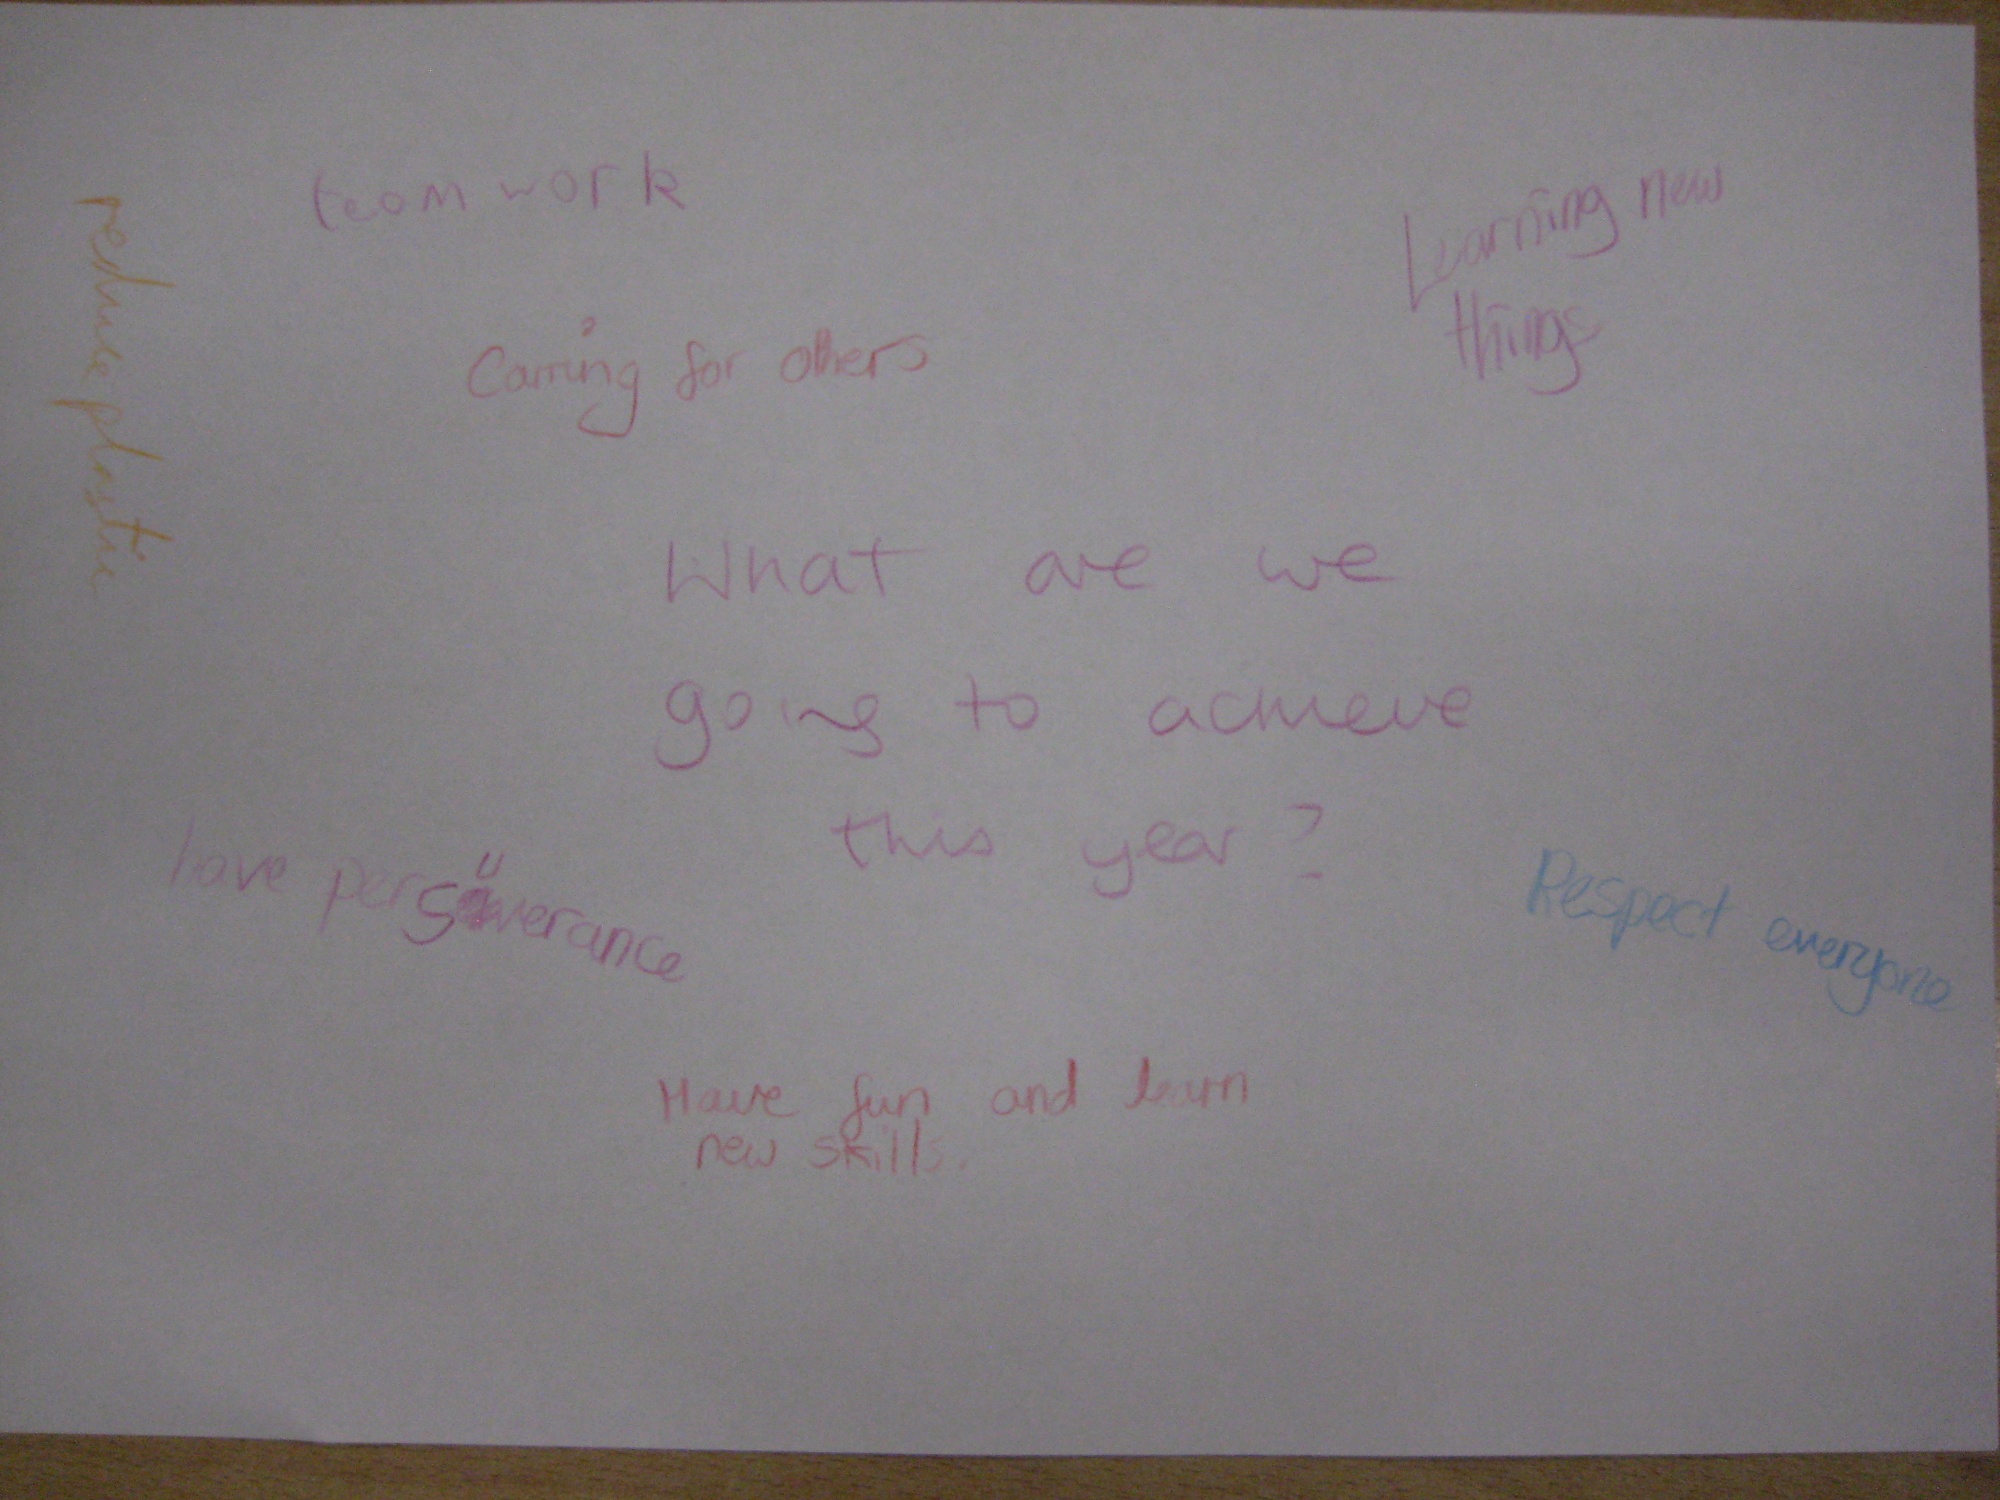 teamwork
Learning new
things
reduce plastic
Carring for others
What are we
going to achieve
this year?
love perseverance
Respect everyone
Have fun and learn
new skills.